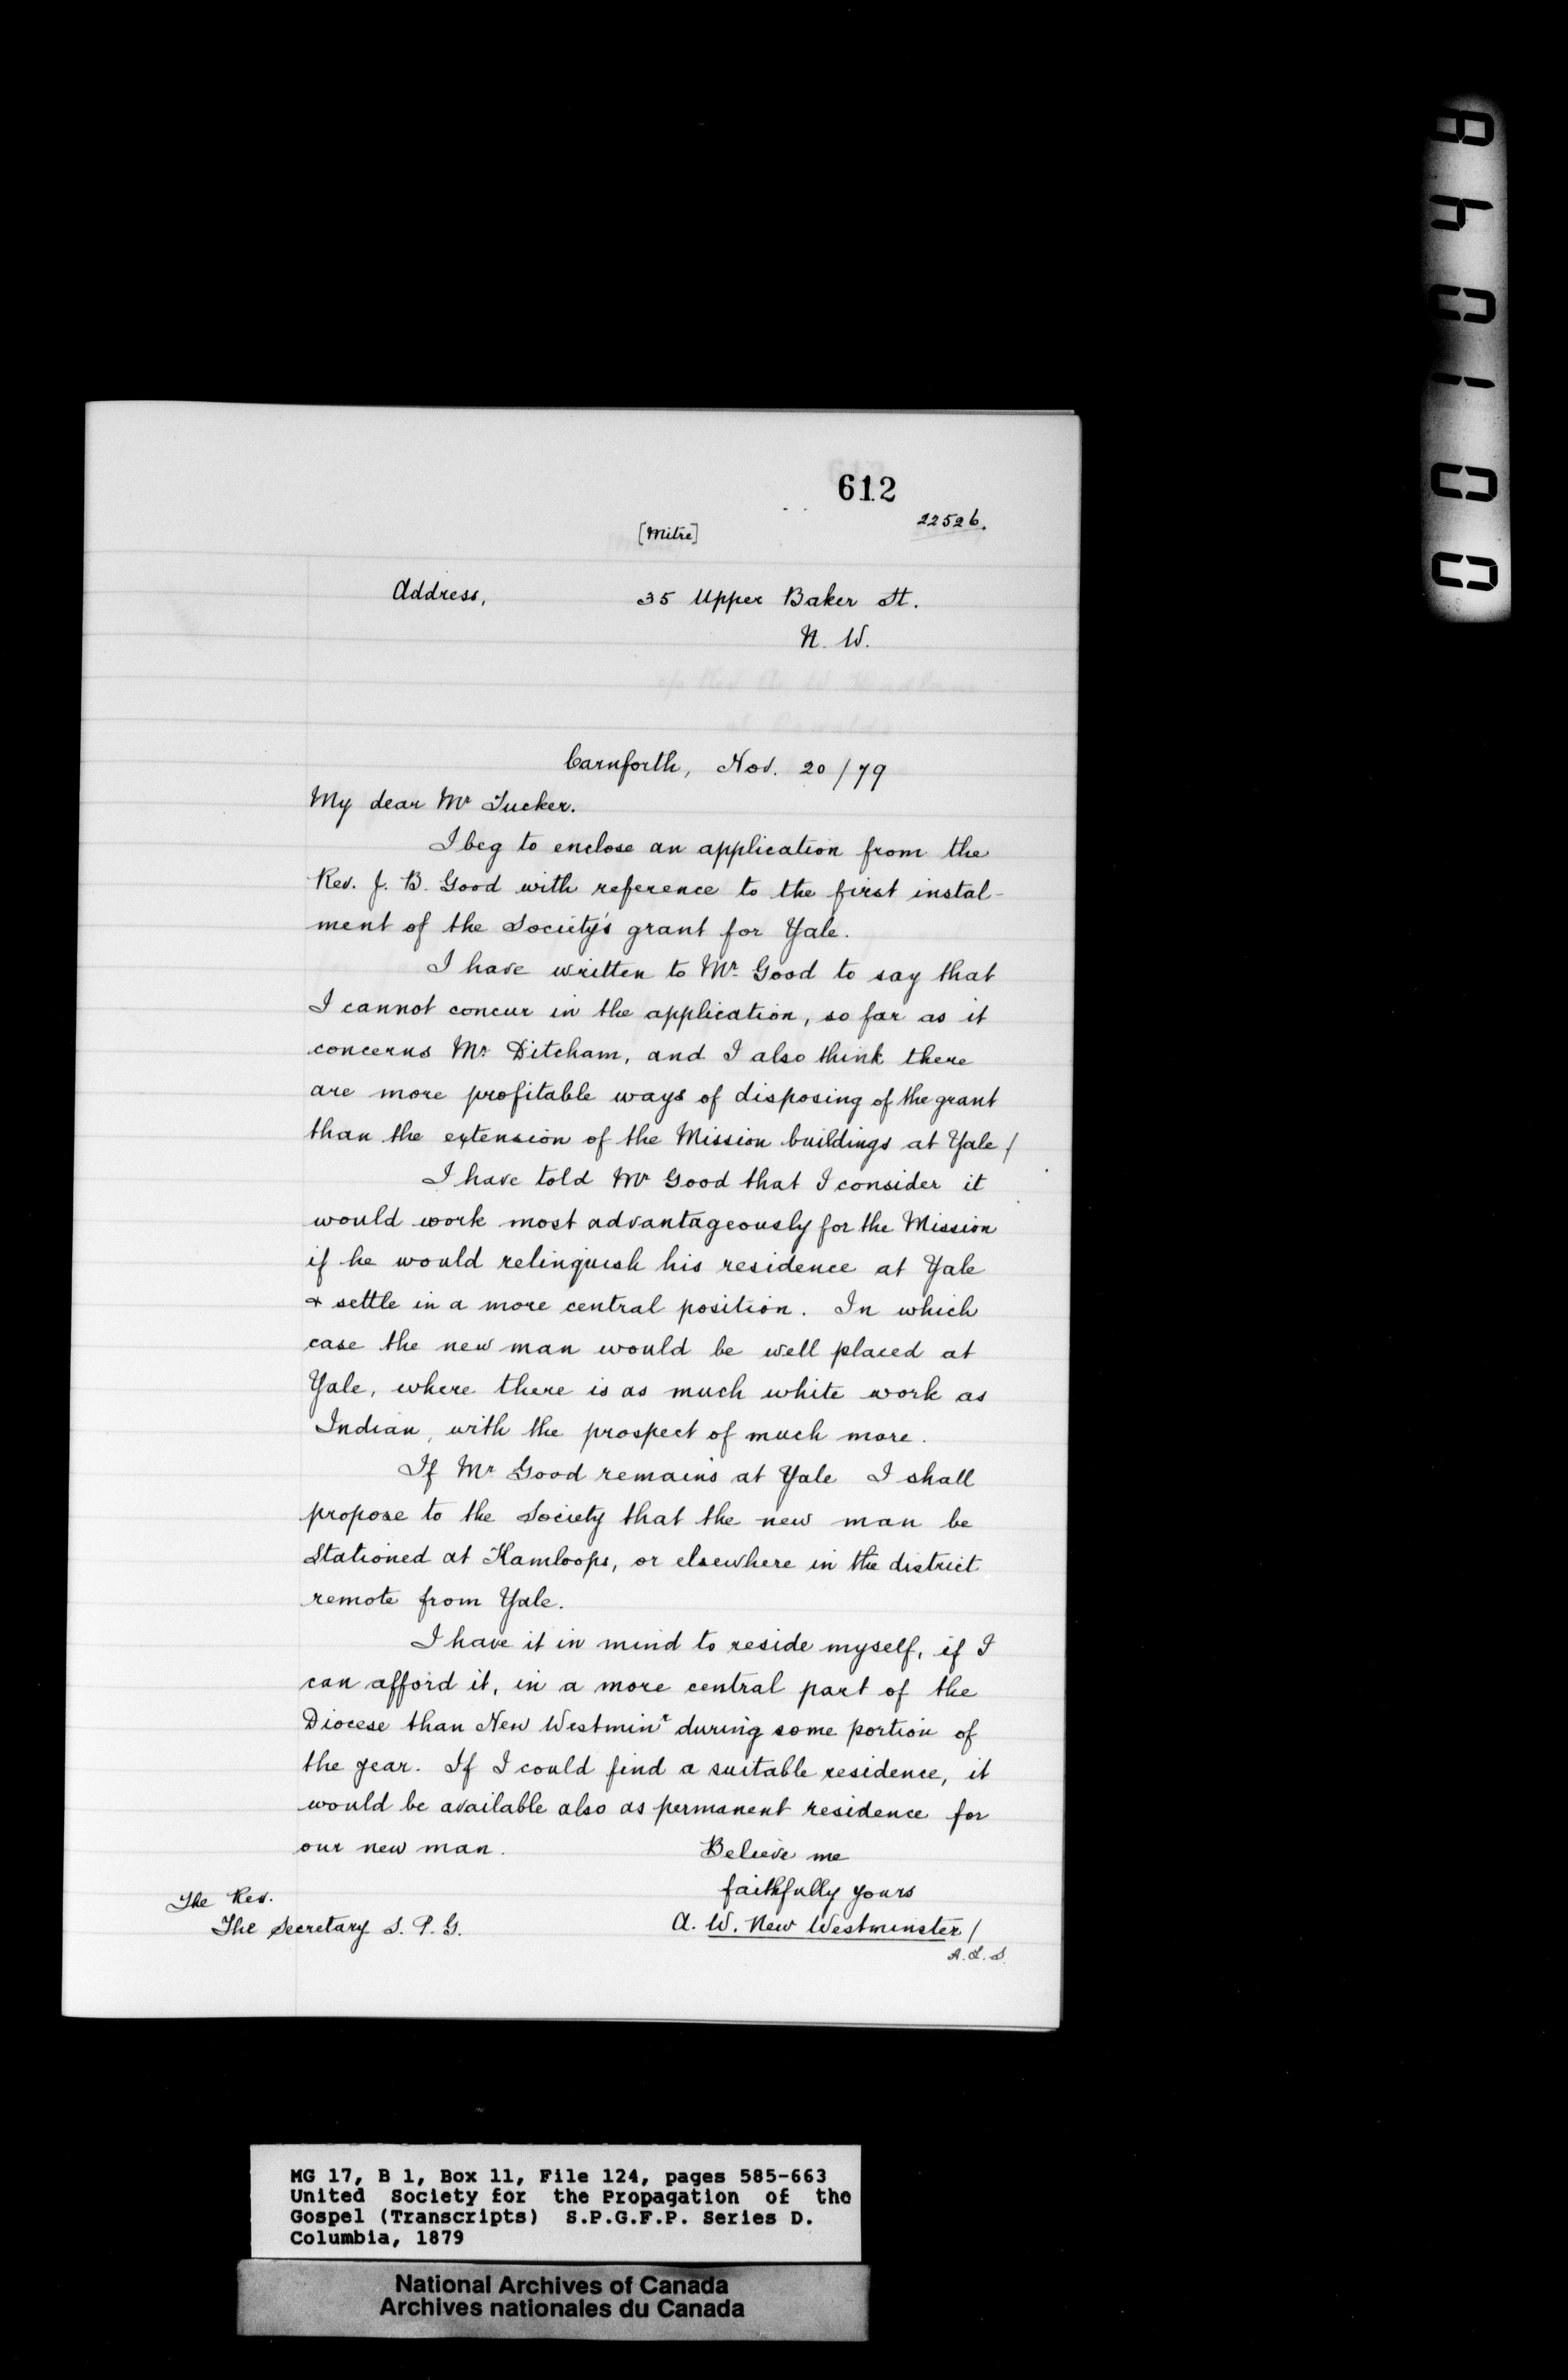 612
22526.
[Mitre]
Address,
35 Upper Baker St.
N. W.
Carnforth, Nov. 20/79
My dear Mr Tucker.
I beg to enclose an application from the
Rev. J. B. Good with reference to the first instal-
ment of the Society's grant for Yale.
I have written to Mr. Good to say that
I cannot concur in the application, so far as it
concerns Mr Ditcham, and I also think there
are more profitable ways of disposing of the grant
than the extension of the Mission buildings at Yale /
I have told Mr Good that I consider it
would work most advantageously for the Mission
if he would relinquish his residence at Yale
& settle in a more central position. In which
case the new man would be well placed at
Yale, where there is as much white work as
Indian, with the prospect of much more.
If Mr Good remains at Yale I shall
propose to the Society that the new man be
Stationed at Kamloops, or elsewhere in the district
remote from Yale.
I have it in mind to reside myself, if I
can afford it, in a more central part of the
Diocese than New Westminr during some portion of
the year. If I could find a suitable residence, it
would be available also as permanent residence for
our new man.
Believe me
faithfully yours
A. W. New Westminster /
A. L. S.
The Rev.
The Secretary S. P. G.
MG 17, B 1, Box 11, File 124, pages 585-663
United Society for the Propagation of the
Gospel (Transcripts) S.P.G.F.P. Series D.
Columbia, 1879
National Archives of Canada
Archives nationales du Canada